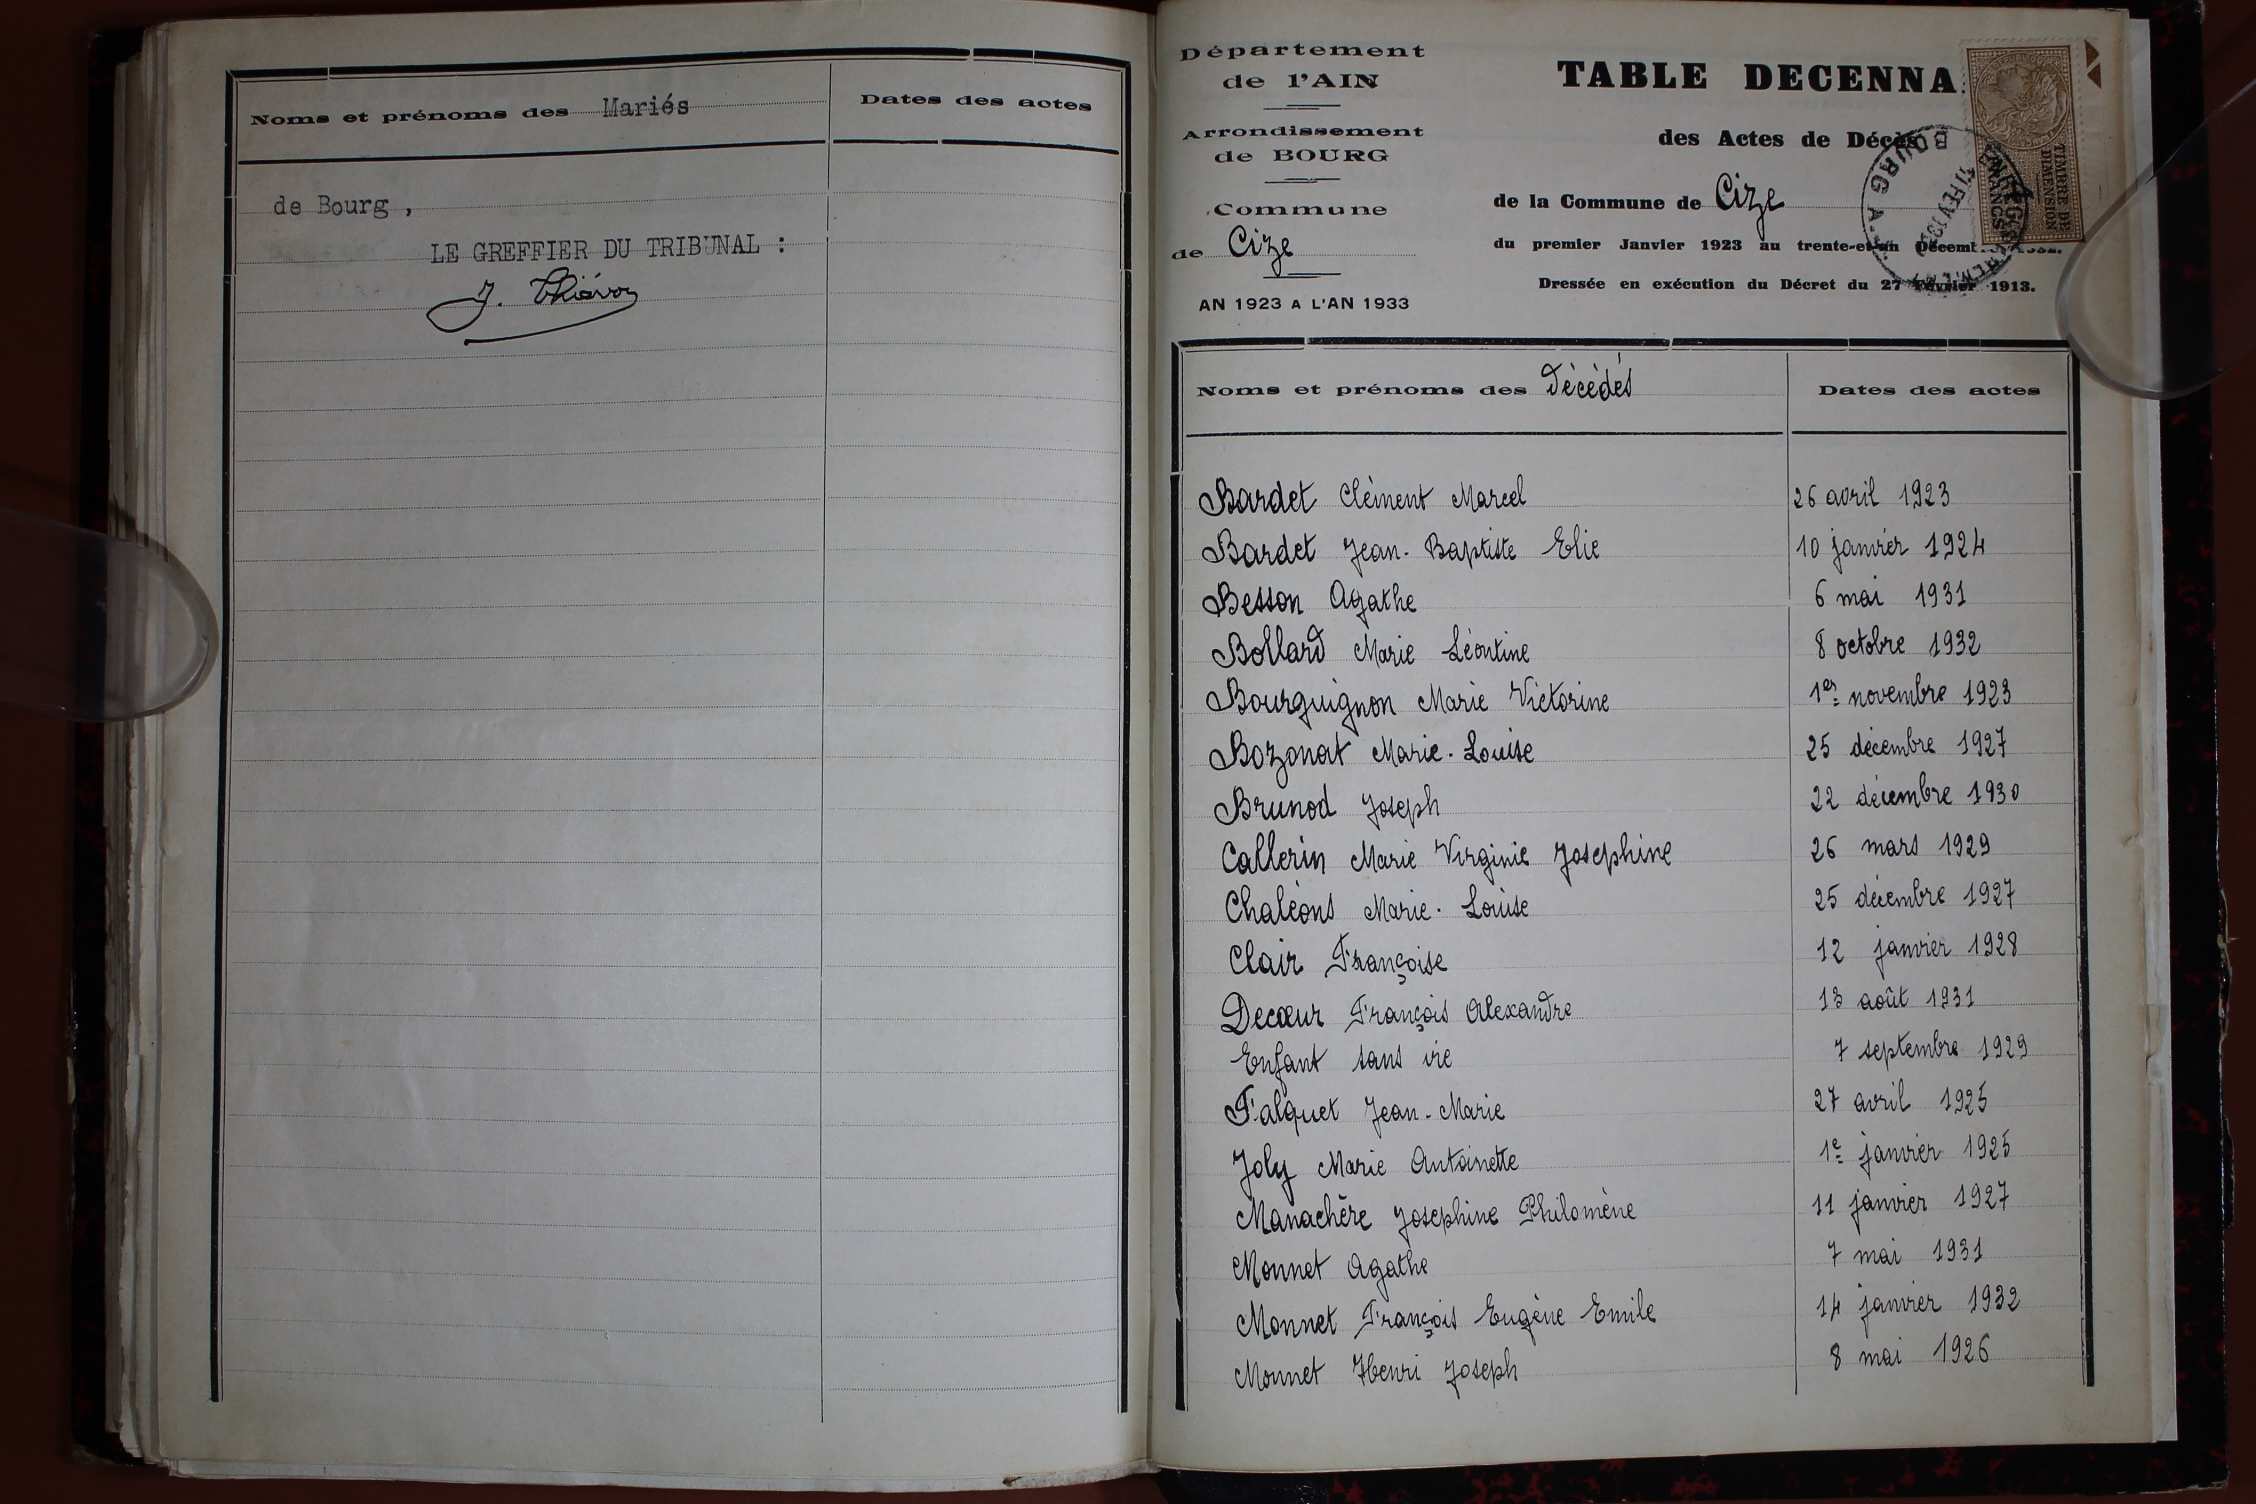 Noms et prénoms des Mariés
Dates des actes
de Bourg ,
LE GREFFIER DU TRIBUNAL :
Département
de l'AIN
Arrondissement
de BOURG
Commune
de Cize
AN 1923 A L'AN 1933
TABLE DECENNA
des Actes de Décès
de la Commune de Cize
du premier Janvier 1923 au trente-et-un Décem
Dressée en exécution du Décret du 27 Février 1913.
TIMBRE DE
DIMENSION
FRANCS
BOURG
Noms et prénoms des Décédés
Dates des actes
Bardet Clément Marcel 26 avril 1923
Bardet Jean-Baptiste Elie 10 janvier 1924
Besson Agathe 6 mai 1931
Bollard Marie Léontine 8 octobre 1932
Bourguignon Marie Victorine 1er novembre 1923
Bozonat Marie-Louise 25 décembre 1927
Brunod Joseph 22 décembre 1930
Callerin Marie Virginie Josephine 26 mars 1929
Chaléons Marie-Louise 25 décembre 1927
Clair Françoise 12 janvier 1928
Decœur François Alexandre 13 août 1931
Enfant sans vie 7 septembre 1929
Falquet Jean-Marie 27 avril 1925
Joly Marie Antoinette 1e janvier 1925
Manachère Josephine Philomène 11 janvier 1927
Monnet Agathe 7 mai 1931
Monnet François Eugène Emile 14 janvier 1932
Monnet Henri Joseph 8 mai 1926